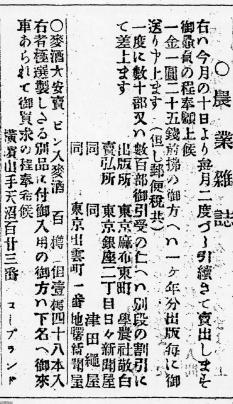 ○農業雜誌
右ハ今月の十日より毎月二度づゝ引續きて賣出しまする
御贔氣の程奉願上候
一金一圓二十五錢前拂の御方へハ一ヶ年分出版毎に御
送り申上ます（但し郵便税共）
一度に數十部又ハ數百部御引受の仁へハ別段の割引に
て差上ます
出版所　東京麻布東町　學農社敬白
賣弘所　東京銀座二丁目日々新聞屋
同　同　津田繩屋
同　東京出雲町一番地曙新聞屋
○麥酒大安賣　ビン入麥酒　百樽　但壹樽四十八本入
右者極撰製しさる別品に付御入用の御方ハ下名へ御來
車あられて御買求の程奉希候
横濱山手天沼百廿三番　コープランド